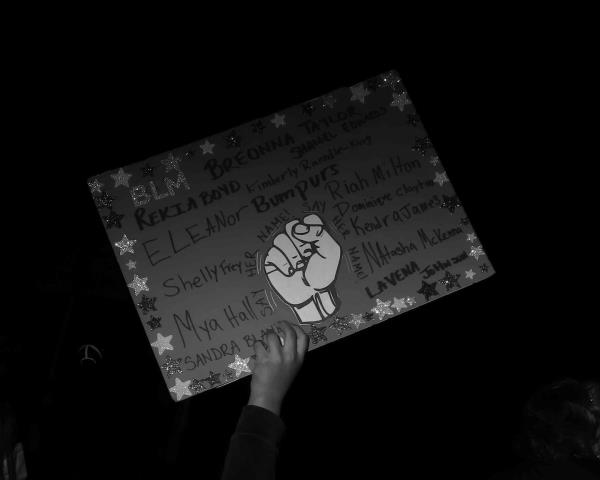 BREONNA TAYLOR
SHANTEL EDWARDS
BLM
REKIA BOYD Kimberly Randle-King
ELEANOR BUMPURS
Riah Milton
Dominique Clayton
Shelly Frey
SAY HER NAME!
SAY HER NAME
Kendra James
NAtasha McKenna
Mya Hall
LAVENA JOHNSON
SANDRA BLAND